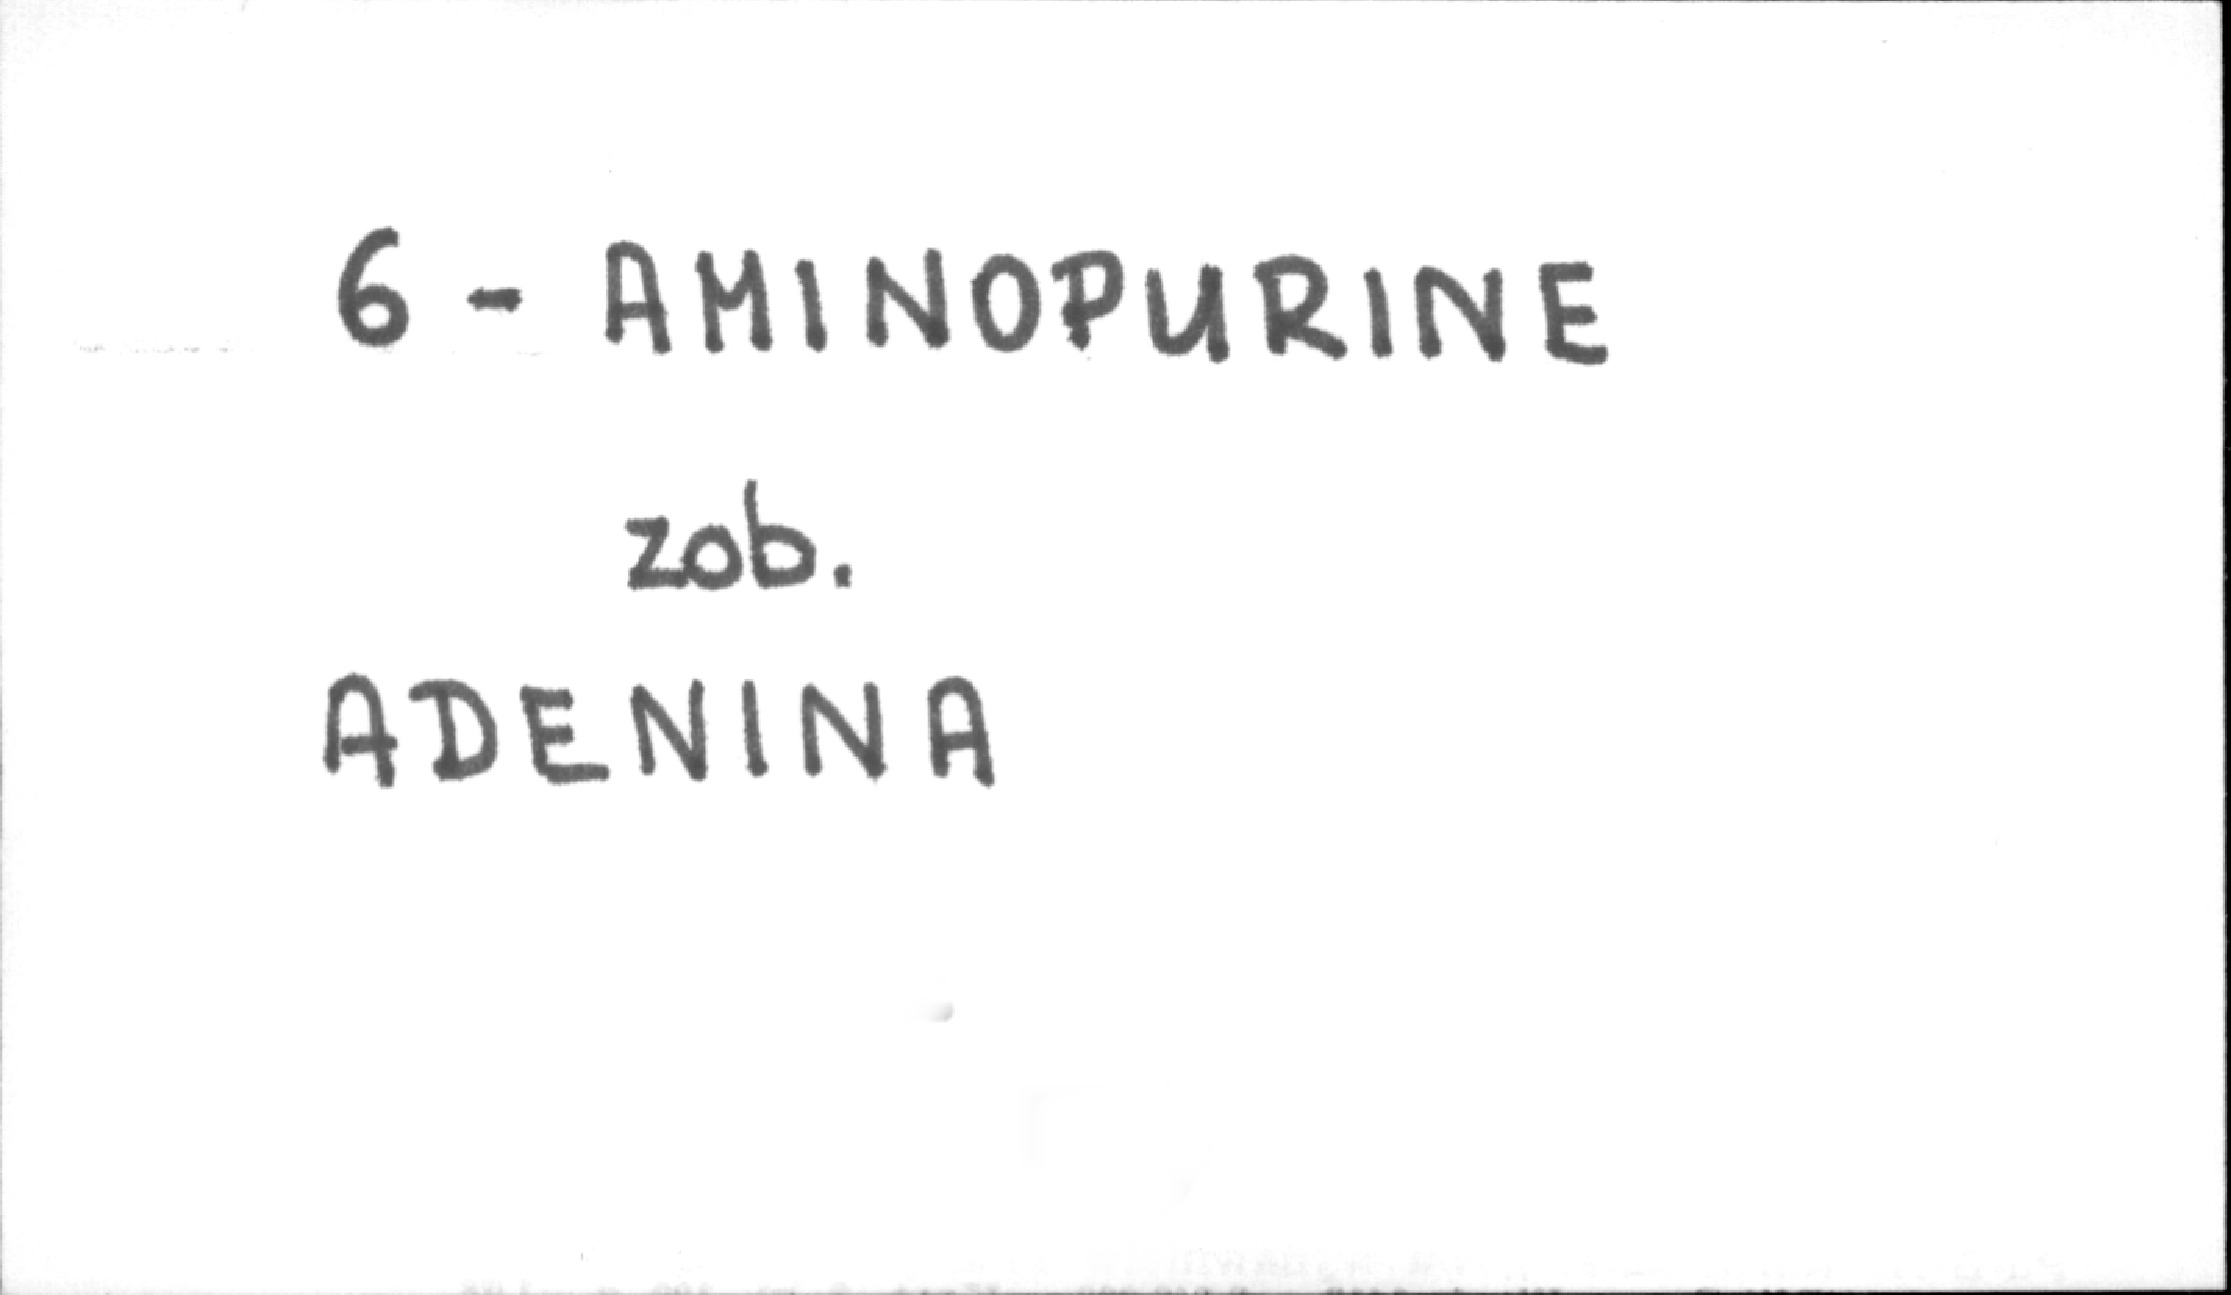 6 - AMINOPURINE
zob.
ADENINA